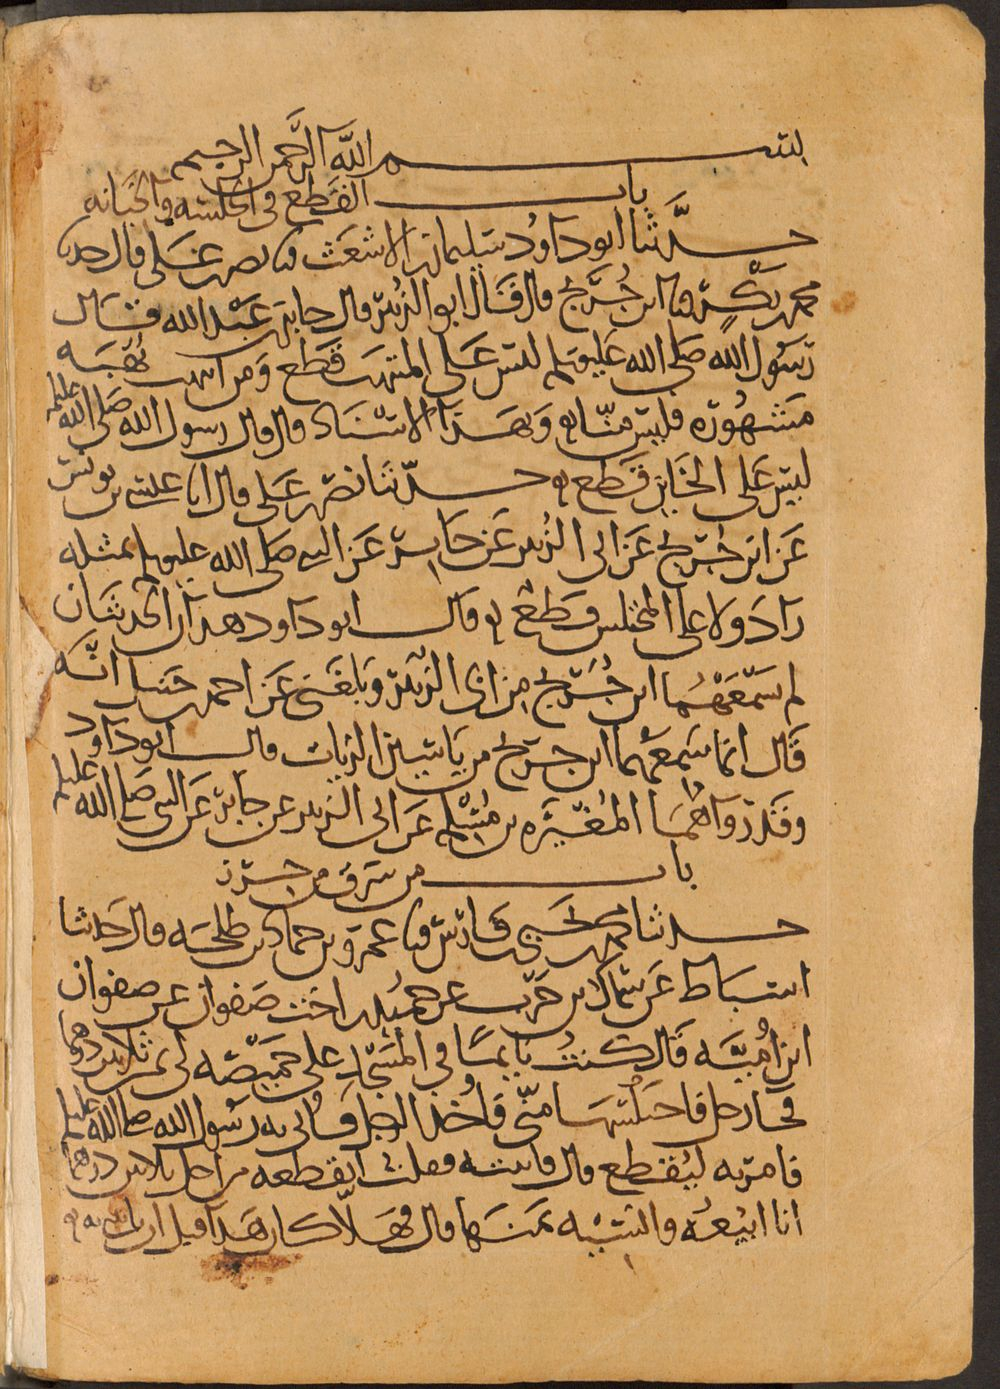 بسم الله الرحمن الرحيم
باب القطع في الخلسة والخيانة
حدثنا ابو داود سليمان بن الاشعث نا نصر بن علي قال حدثنا
محمد بن بكر نا ابن جريج قال قال ابو الزبير قال جابر بن عبد الله قال
رسول الله صلى الله عليه وسلم ليس على المنتهب قطع ومن انتهب نهبه
مشهوره فليس منا وبهذا الاسناد قال قال رسول الله صلى الله عليه
ليس على الخاين قطع حدثنا نصر بن علي قال انا عيسى بن يونس
عن ابن جريج عن ابي الزبير عن جابر عن النبي صلى الله عليه وسلم بمثله
زاد ولا على المختلس قطع قال ابو داود هذان الحديثان
لم يسمعهما ابن جريج من ابي الزبير وبلغني عن احمد بن حنبل انه
قال انما سمعهما ابن جريج من ياسين الزيات قال ابو داود
وقد رواهما المغيره بن مسلم عن ابي الزبير عن جابر عن النبي صلى الله عليه
باب من سرق من حرز
حدثنا محمد بن يحيى بن فارس نا عمرو بن حماد بن طلحه قال حدثنا
اسباط عن سماك بن حرب عن حميد بن اخت صفوان عن صفوان
ابن اميه قال كنت نايما في المسجد على خميصه لي ثمن ثلاثين درهما
فجا رجل فاختلسها مني فاخذ الرجل فاتي به رسول الله صلى الله عليه
فامر به ليقطع قال فاتيته فقلت اتقطعه من اجل ثلاثين درهما
انا ابيعه وانسيه ثمنها قال فهلا كان هذا قبل ان تاتيني به